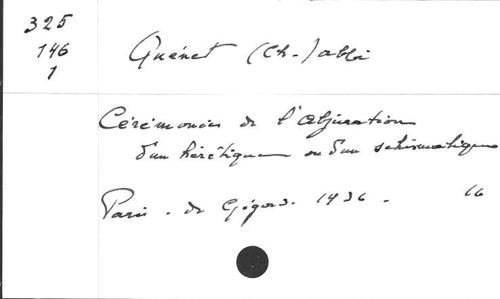 325
146
1
Guénet (Ch.) abbé
Cérémonies de l'abjuration
d'un hérétique ou d'un schismatique
Paris. de Gigord. 1936. 16